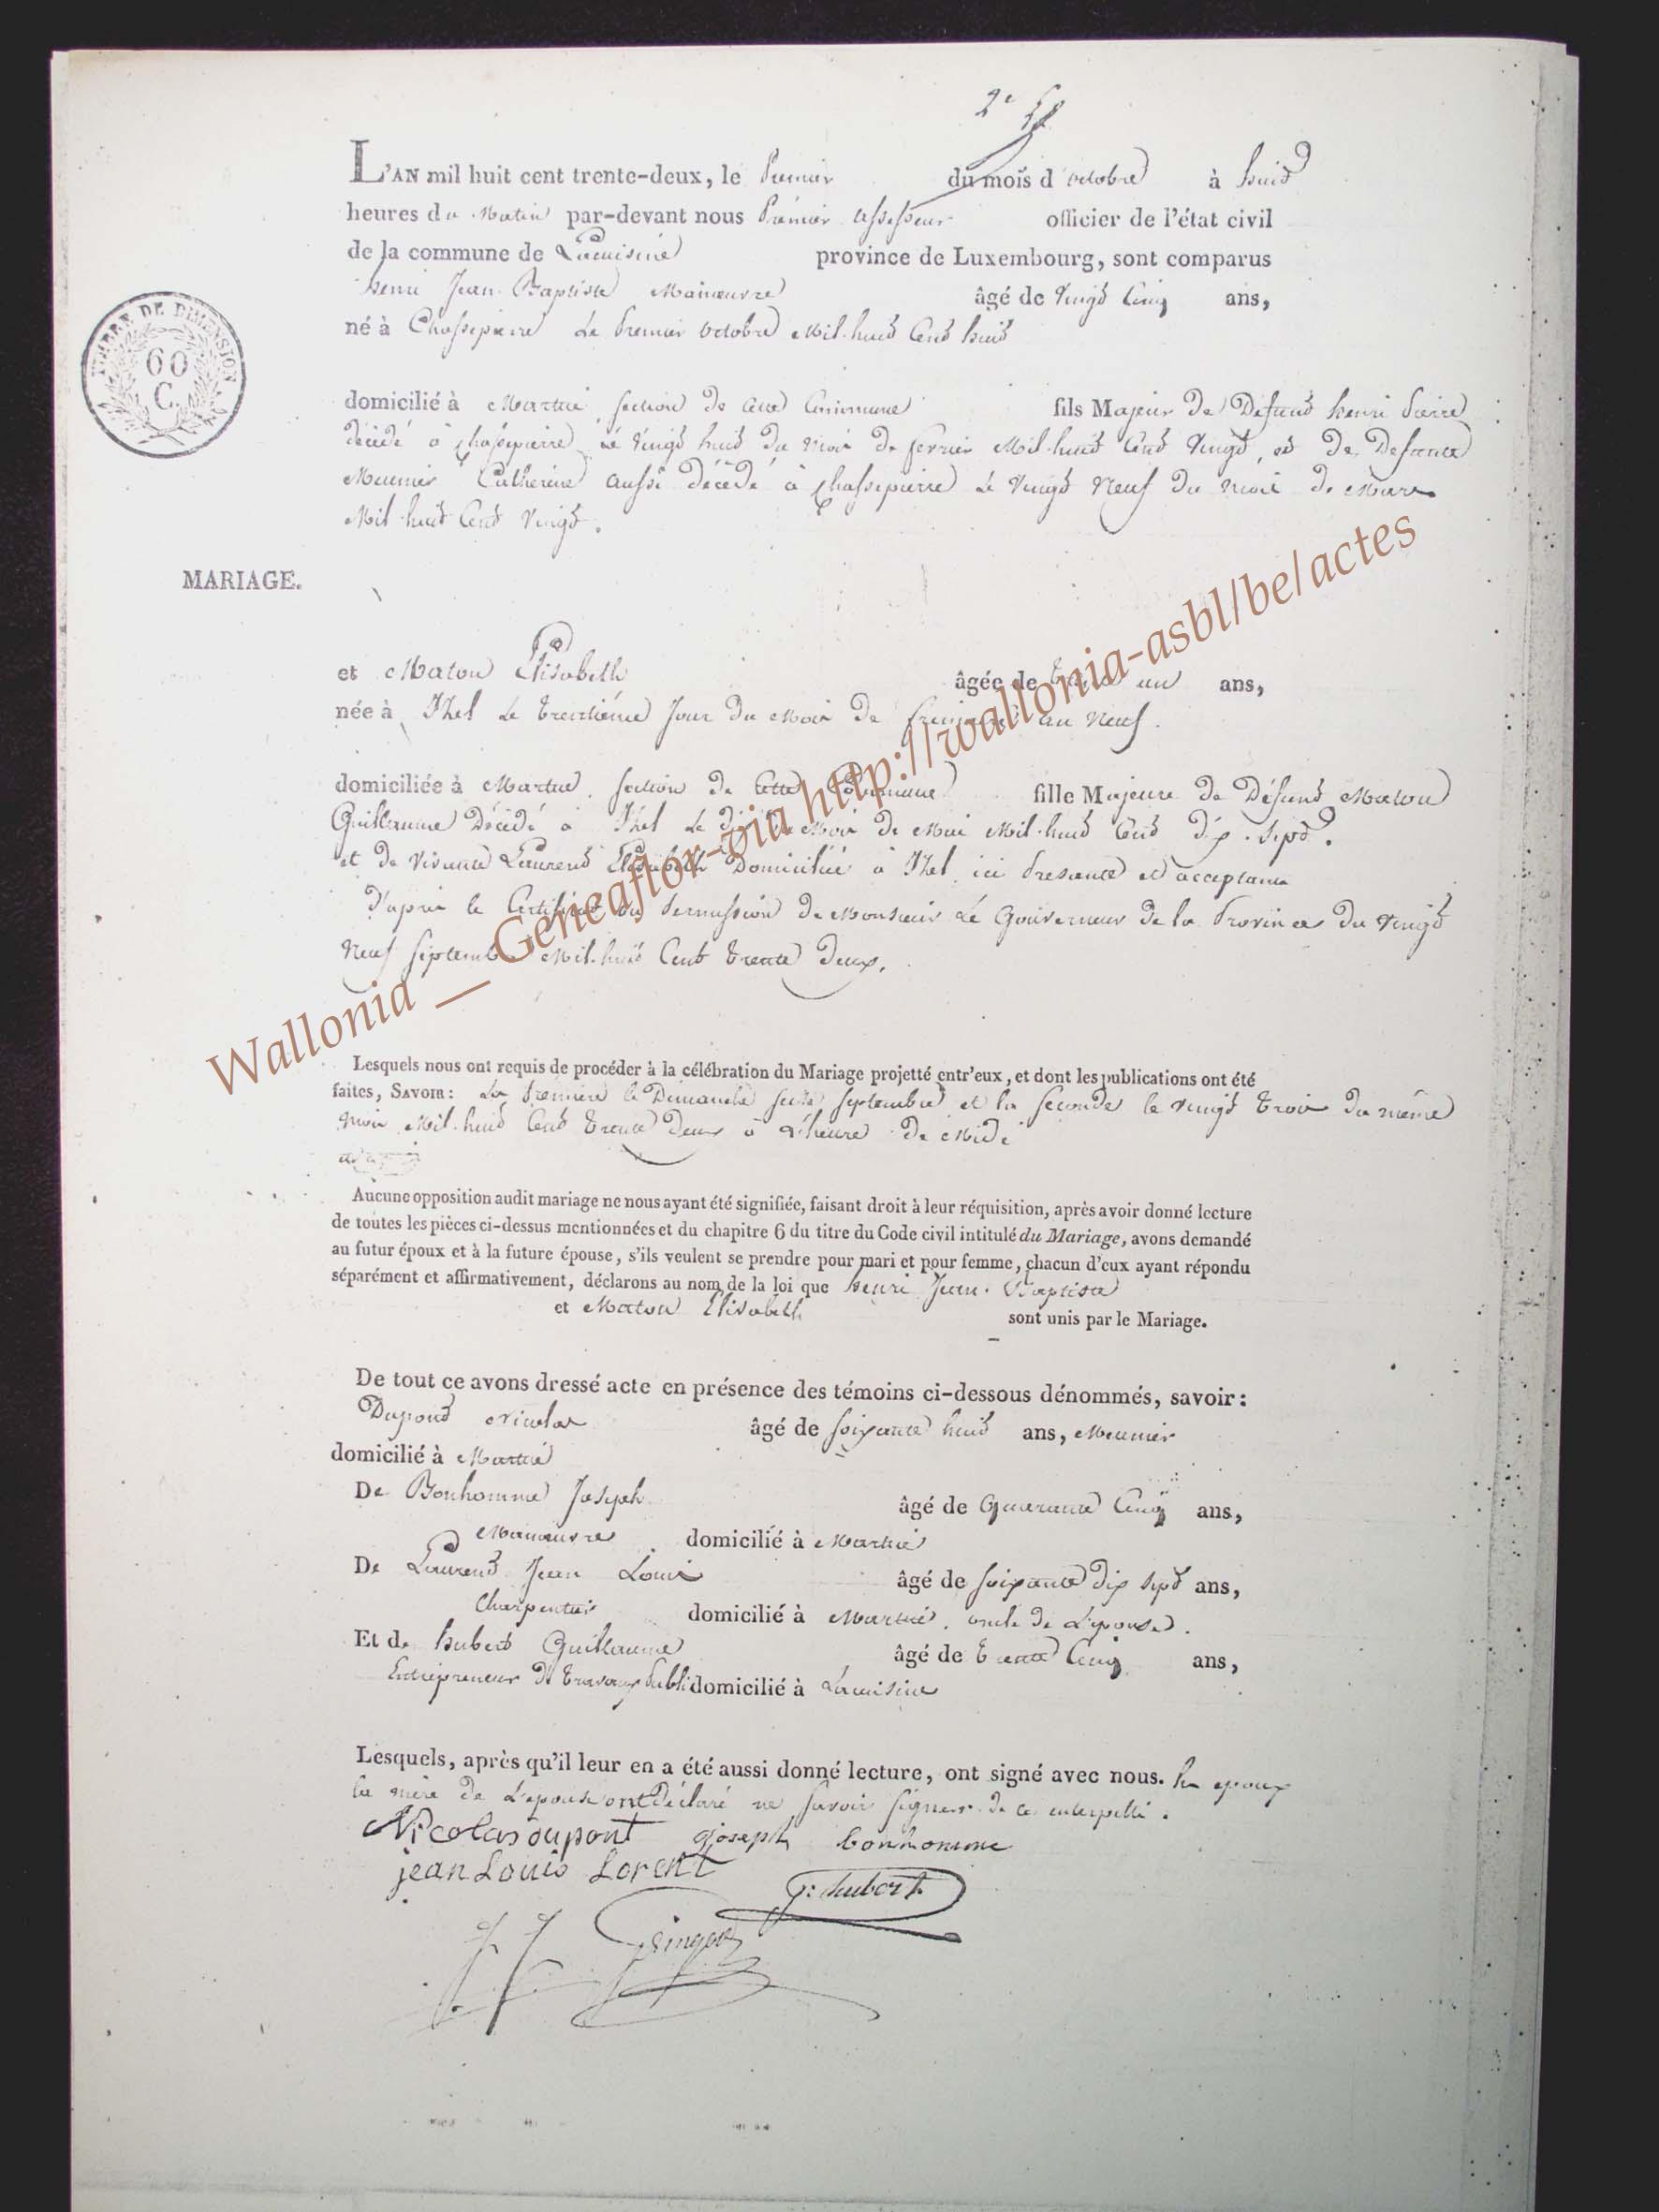 2e
L'AN mil huit cent trente-deux, le Premier du mois d'octobre à huit
heures du Matin par-devant nous Premier Assesseur officier de l'état civil
de la commune de Lacuisine province de Luxembourg, sont comparus
henri Jean Baptiste Manœuvre âgé de vingt Cinq ans,
né à Chassepierre Le Premier octobre Mil-huit Cent huit
TIMBRE DE DIMENSION
60
C.
domicilié à Martué section de cette Commune fils Majeur de Défunt henri Pierre
décédé à Chassepierre Le vingt huit du mois de fevrier Mil-huit Cent vingt, et de Defunte
Meunier Catherine aussi décédé à Chassepierre Le vingt Neuf du mois de Mars
Mil-huit Cent vingt.
MARIAGE.
et Maton Elisabeth âgée de un ans,
née à Izel Le treizième Jour du Mois de frimaire an Neuf.
domiciliée à Martué section de Cette Commune fille Majeure de Défunt Maton
Guillaume Décédé à Izel Le Mois de Mai Mil-huit Cent dix-sept.
et de vivante Laurent Elisabeth Domiciliée à Izel ici Presente et acceptante
D'après le Certificat Permission de Monsieur Le Gouverneur de la Province du vingt
Neuf Septembre Mil-huit Cent trente Deux.
Wallonia __ Geneaflor-via http://wallonia-asbl/be/actes
Lesquels nous ont requis de procéder à la célébration du Mariage projetté entr'eux, et dont les publications ont été
faites, SAVOIR: La Premiere le Dimanche Septembre et la Seconde le vingt trois du même
mois Mil-huit Cent trente Deux à L'heure de Midi
Aucune opposition audit mariage ne nous ayant été signifiée, faisant droit à leur réquisition, après avoir donné lecture
de toutes les pièces ci-dessus mentionnées et du chapitre 6 du titre du Code civil intitulé du Mariage, avons demandé
au futur époux et à la future épouse, s'ils veulent se prendre pour mari et pour femme, chacun d'eux ayant répondu
séparément et affirmativement, déclarons au nom de la loi que henri Jean-Baptiste
et Maton Elisabeth sont unis par le Mariage.
De tout ce avons dressé acte en présence des témoins ci-dessous dénommés, savoir:
Dupont Nicolas âgé de soixante huit ans, Meunier
domicilié à Martué
De Bonhomme Joseph âgé de Quarante Cinq ans,
Manœuvre domicilié à Martué
De Laurent Jean Louis âgé de soixante dix sept ans,
Charpentier domicilié à Martué, oncle de L'epouse.
Et de hubert Guillaume âgé de trente Cinq ans,
Entrepreneur de travaux Publi domicilié à Lacuisine
Lesquels, après qu'il leur en a été aussi donné lecture, ont signé avec nous. les epoux
la mère de L'epouse ont Déclaré ne savoir signer de ce interpellé.
Nicolas dupont joseph bonhomme
jean Louis Lorent
G: hubert